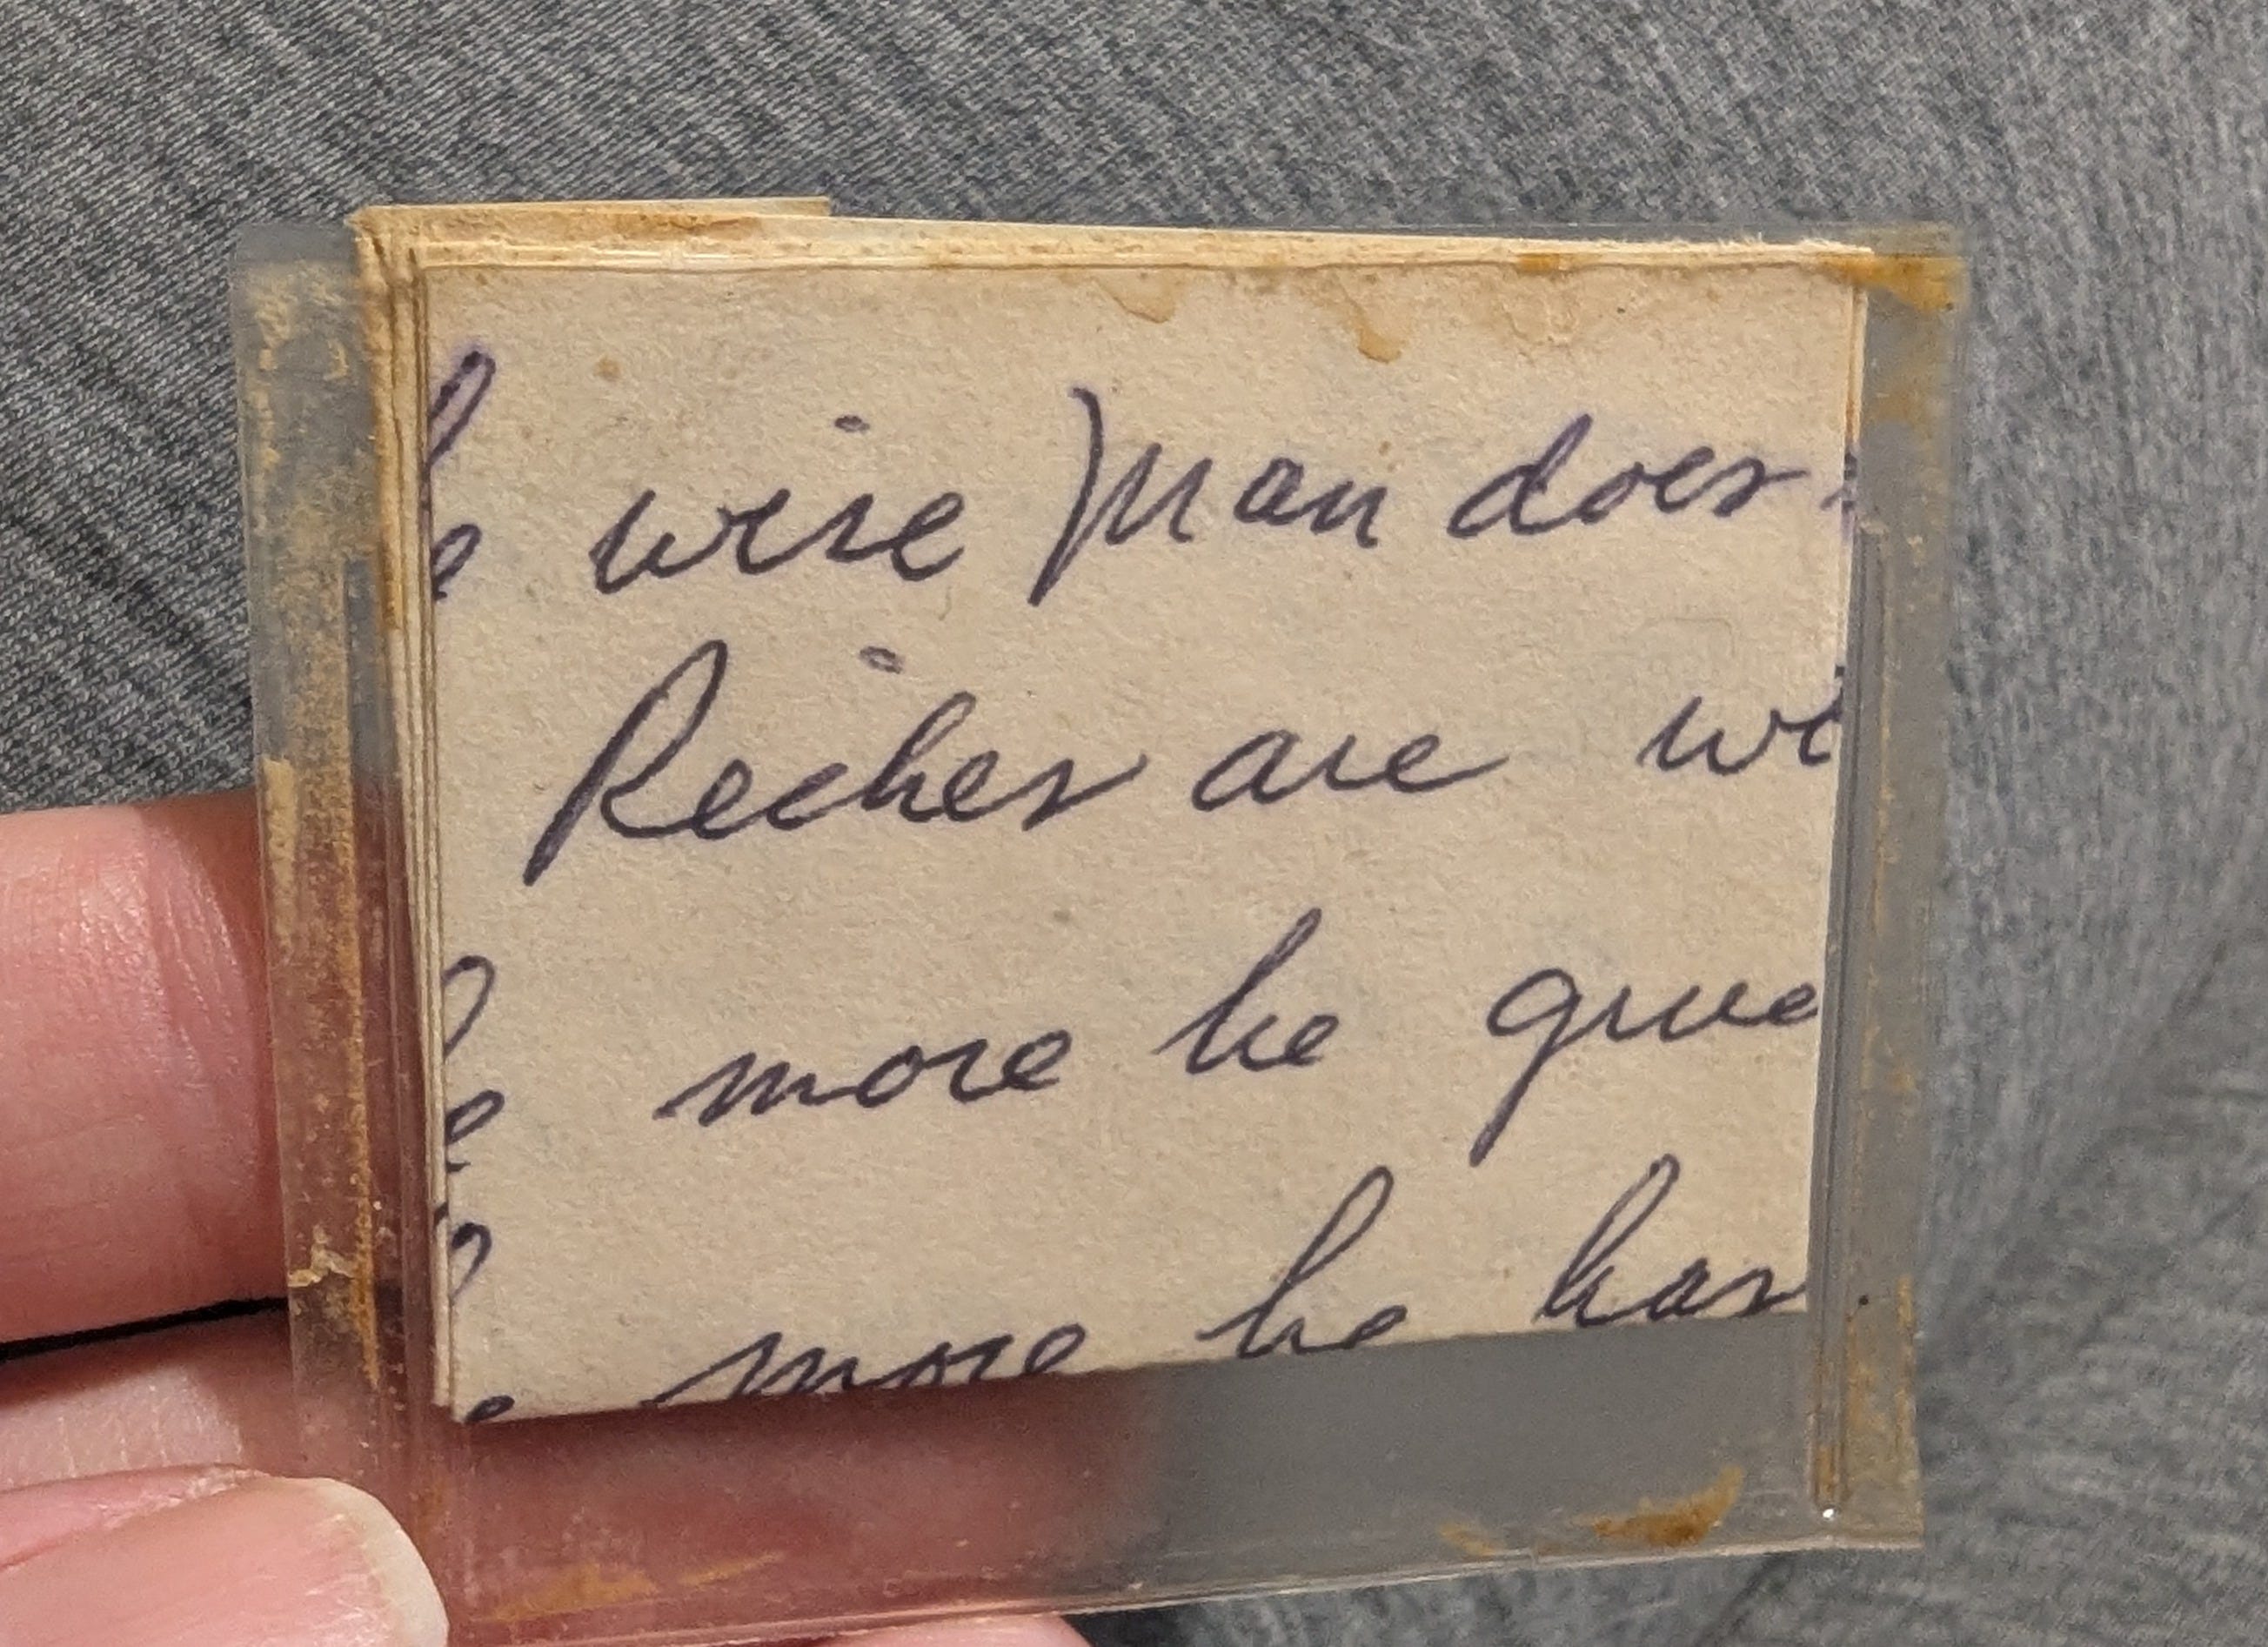 e wise Man does
Riches are wi
e more he give
e more he has